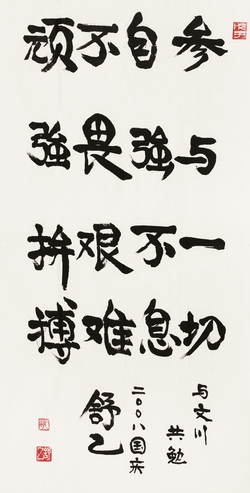 参与一切
自強不息
不畏艰难
顽強拚搏
与文川
共勉
二〇〇八国庆
舒乙